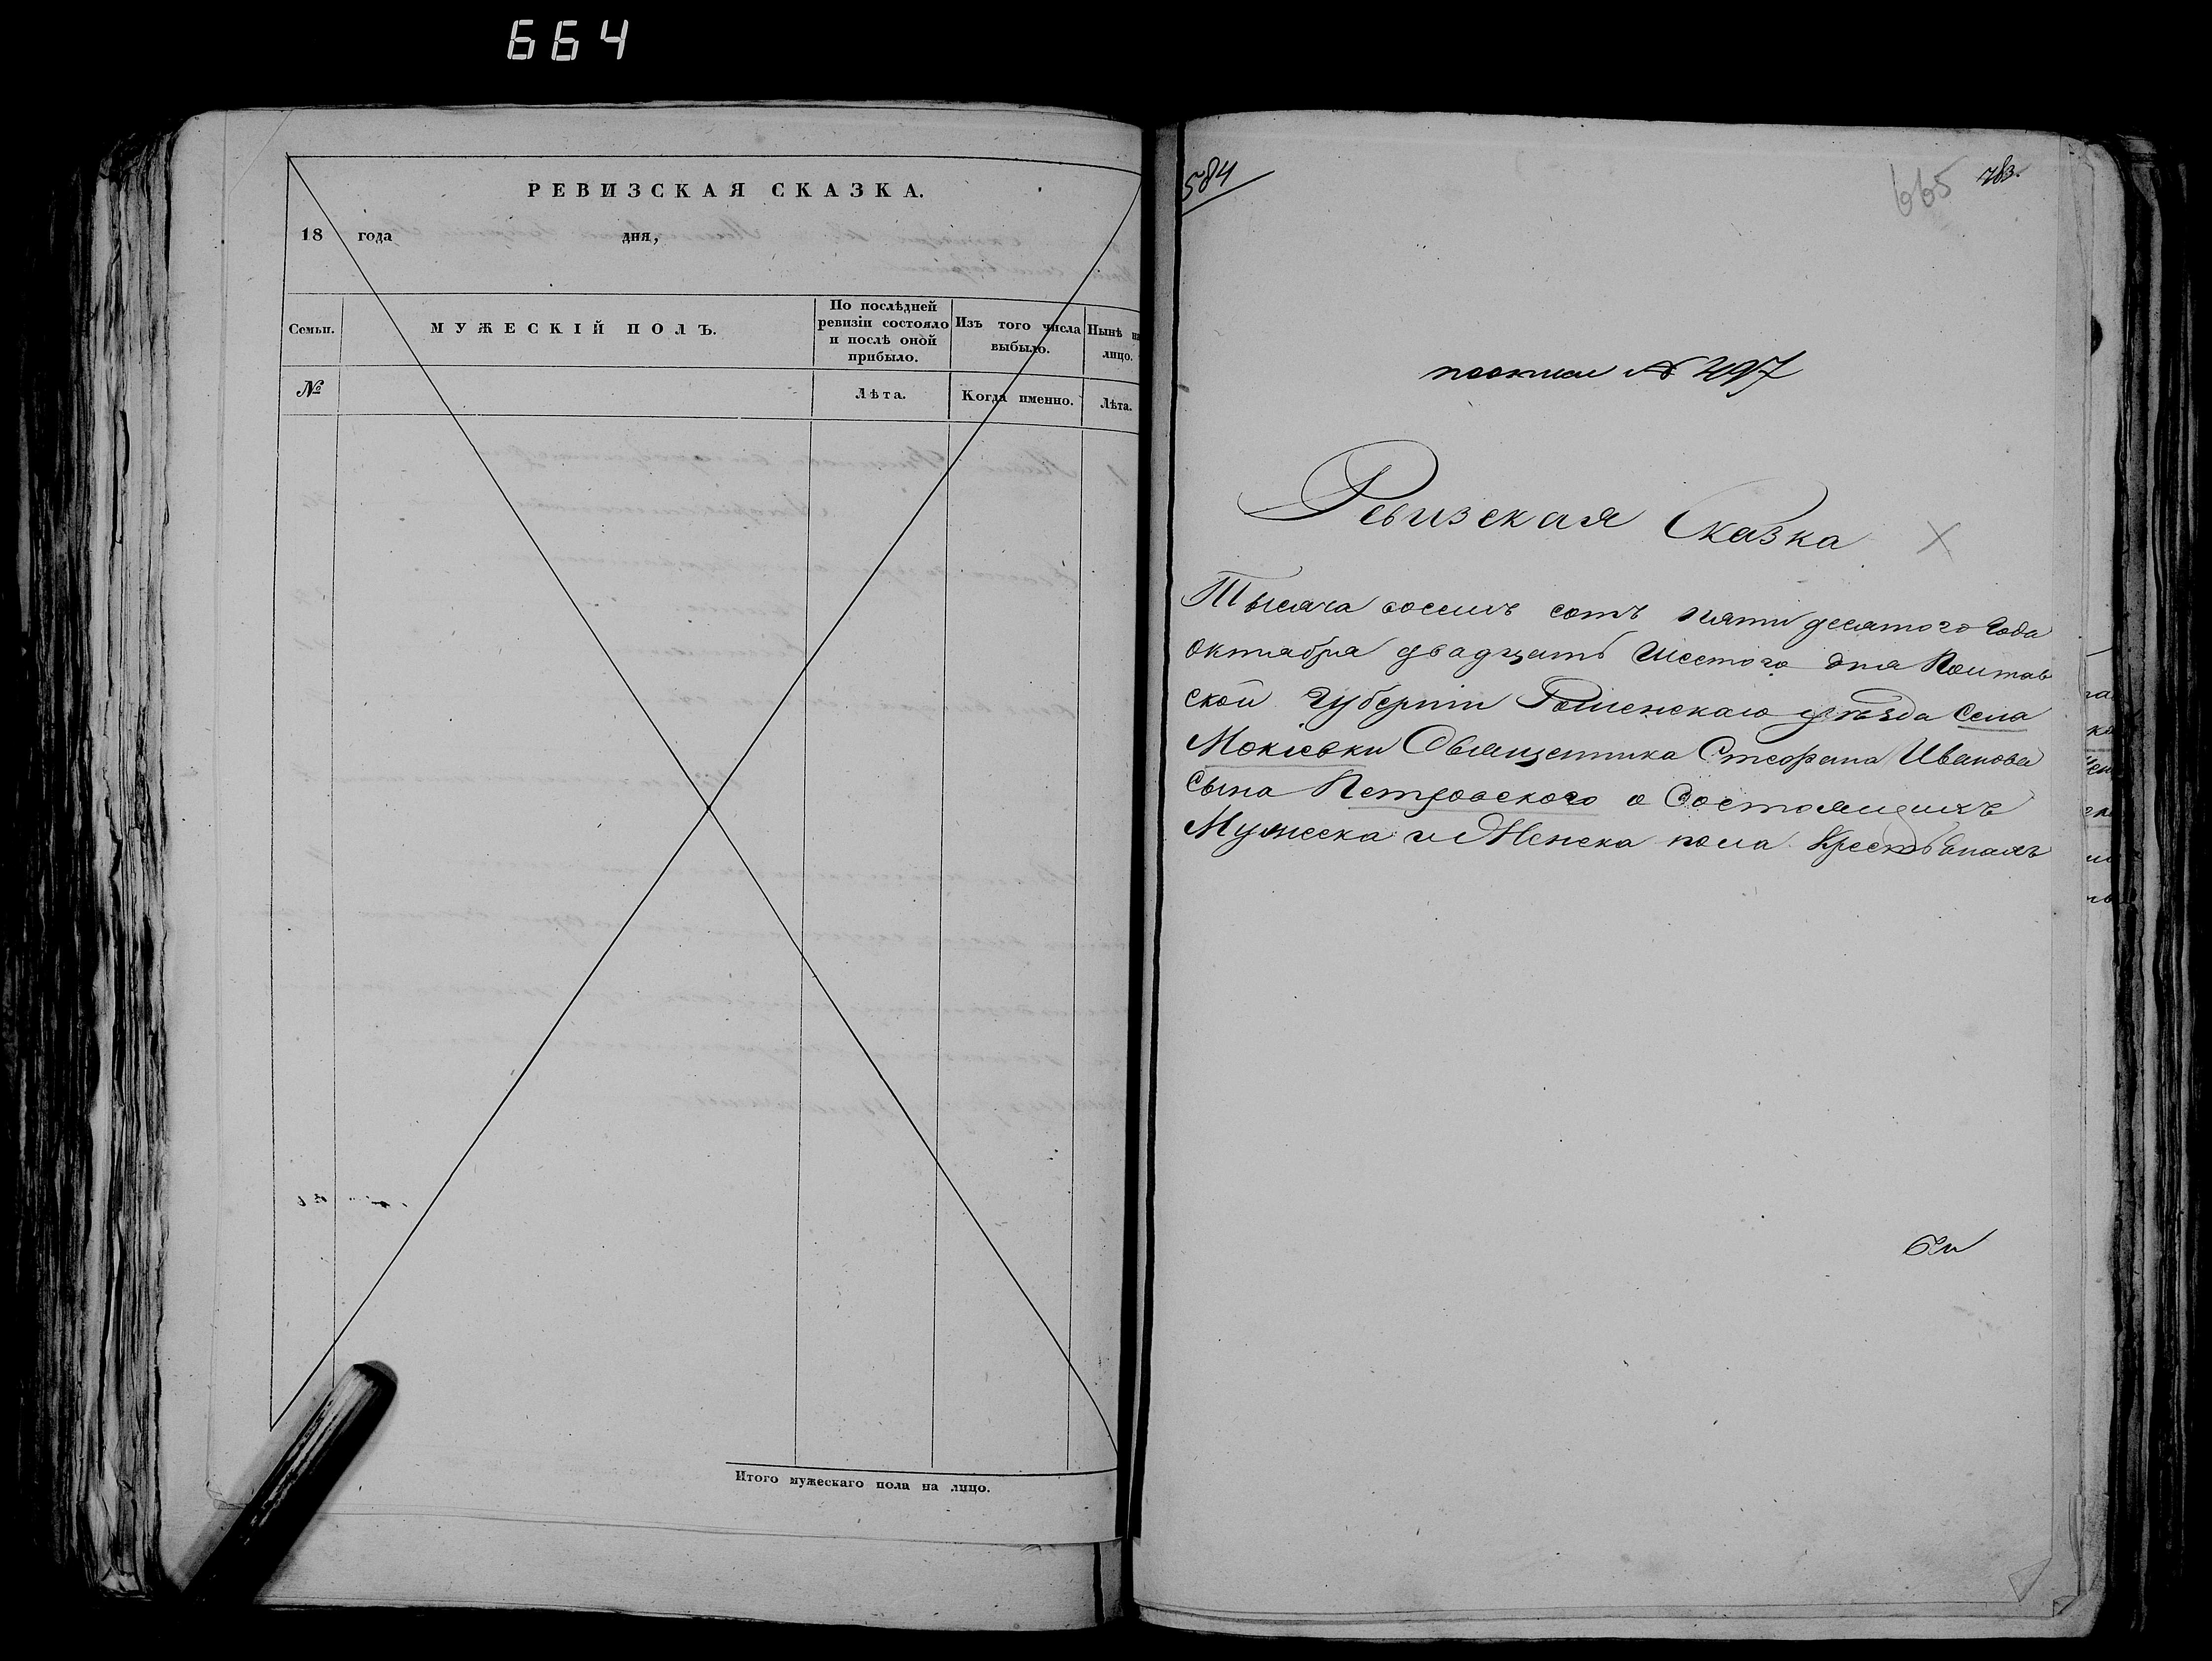 664
РЕВИЗСКАЯ СКАЗКА.
18 года дня,
Семьи.
МУЖЕСКІЙ ПОЛЪ.
По послѣдней
ревизіи состояло
и послѣ оной
прибыло.
Изъ того числа
выбыло.
Нынѣ на
лицо.
№
Лѣта.
Когда именно.
Лѣта.
Итого мужескаго пола на лицо.
584
665
783.
№ 497
Ревизская Сказка
Тысяча восемъ сотъ пяти десятого Года
Октября двадцать шестого дня Полтав
ской Губерніи Роменскаго уѣзда Села
Мокіевки Священника Стефана Иванова
Сына Петровского о Состоящихъ
Мужеска и Женска пола Крестьянахъ